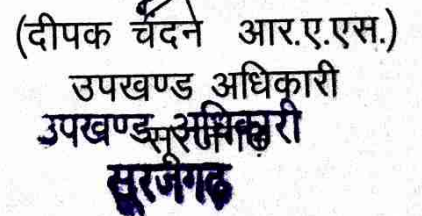 (दीपक चंदन आर.ए.एस.)
उपखण्ड अधिकारी
उपखण्ड अधिकारी
सूरजगढ